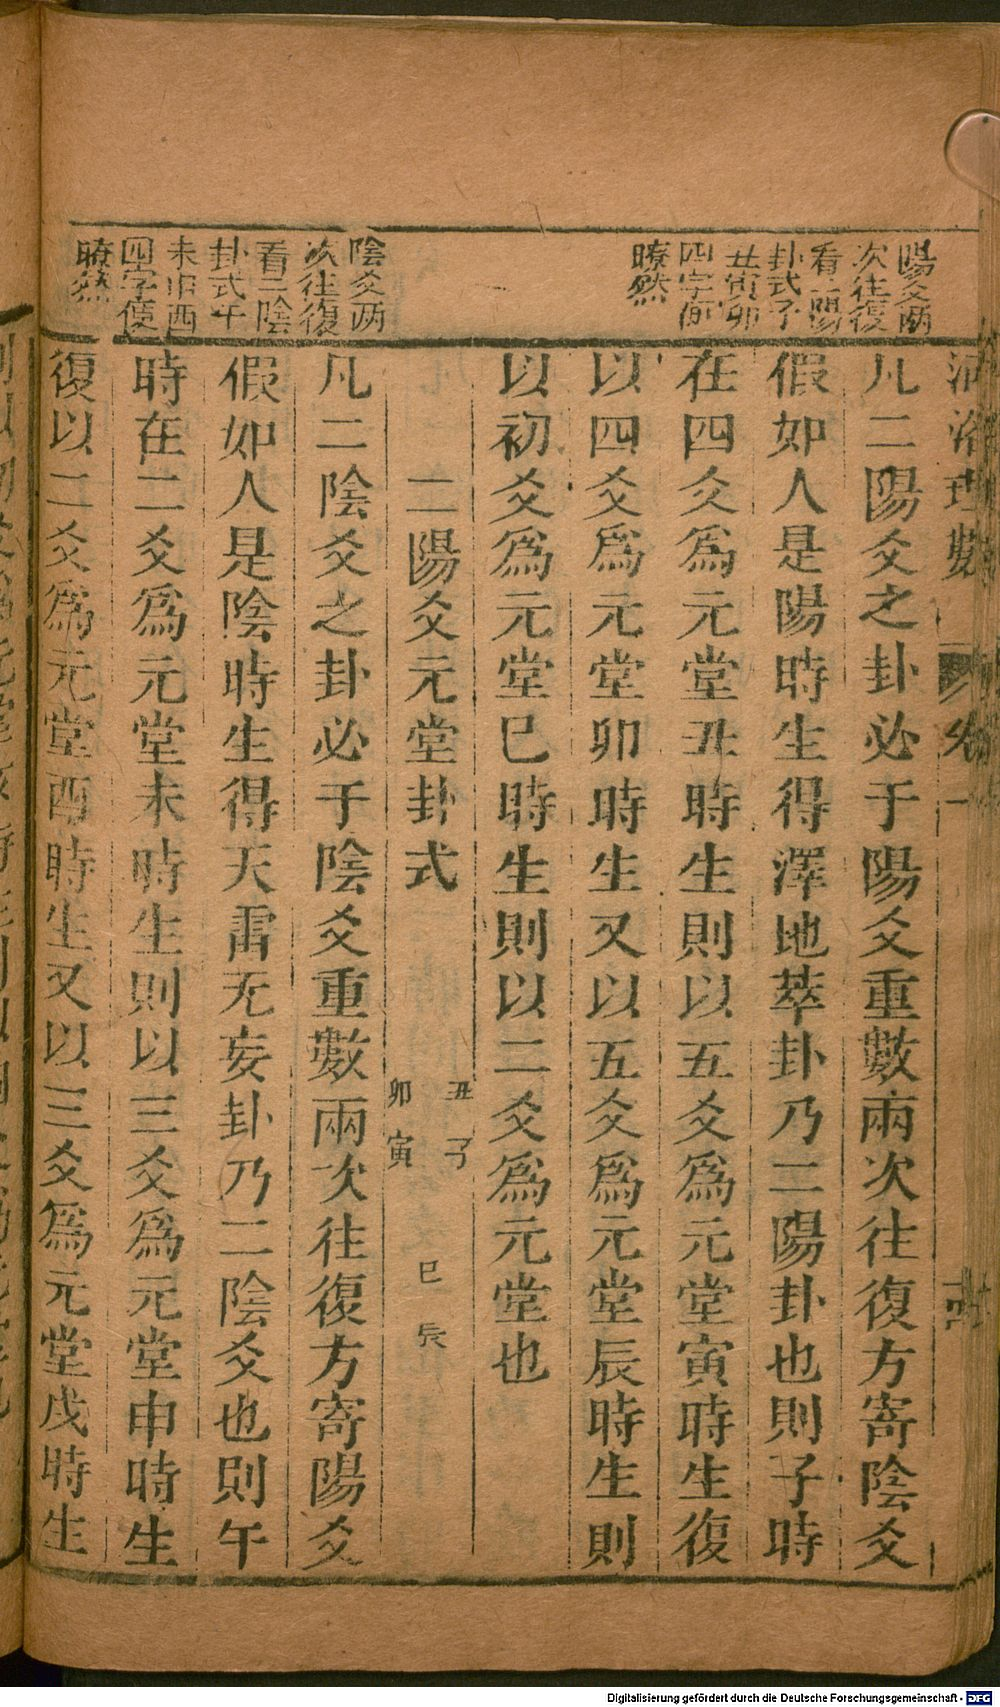 陽爻兩
次往復
看二陽
卦式子
丑寅卯
四字便
瞭然
陰爻两
次往復
看二陰
卦式午
未申酉
四字便
瞭然
河洛理數
卷一
凡二陽爻之卦必于陽爻重數兩次往復方寄陰爻
假如人是陽時生得澤地萃卦乃二陽卦也則子時
在四爻爲元堂丑時生則以五爻爲元堂寅時生復
以四爻爲元堂卯時生又以五爻爲元堂辰時生則
以初爻爲元堂巳時生則以二爻爲元堂也
二陽爻元堂卦式
丑 子
卯 寅
巳 辰
凡二陰爻之卦必于陰爻重數兩次往復方寄陽爻
假如人是陰時生得天雷无妄卦乃二陰爻也則午
時在二爻爲元堂未時生則以三爻爲元堂申時生
復以二爻爲元堂酉時生又以三爻爲元堂戌時生
Digitalisierung gefördert durch die Deutsche Forschungsgemeinschaft - DFG